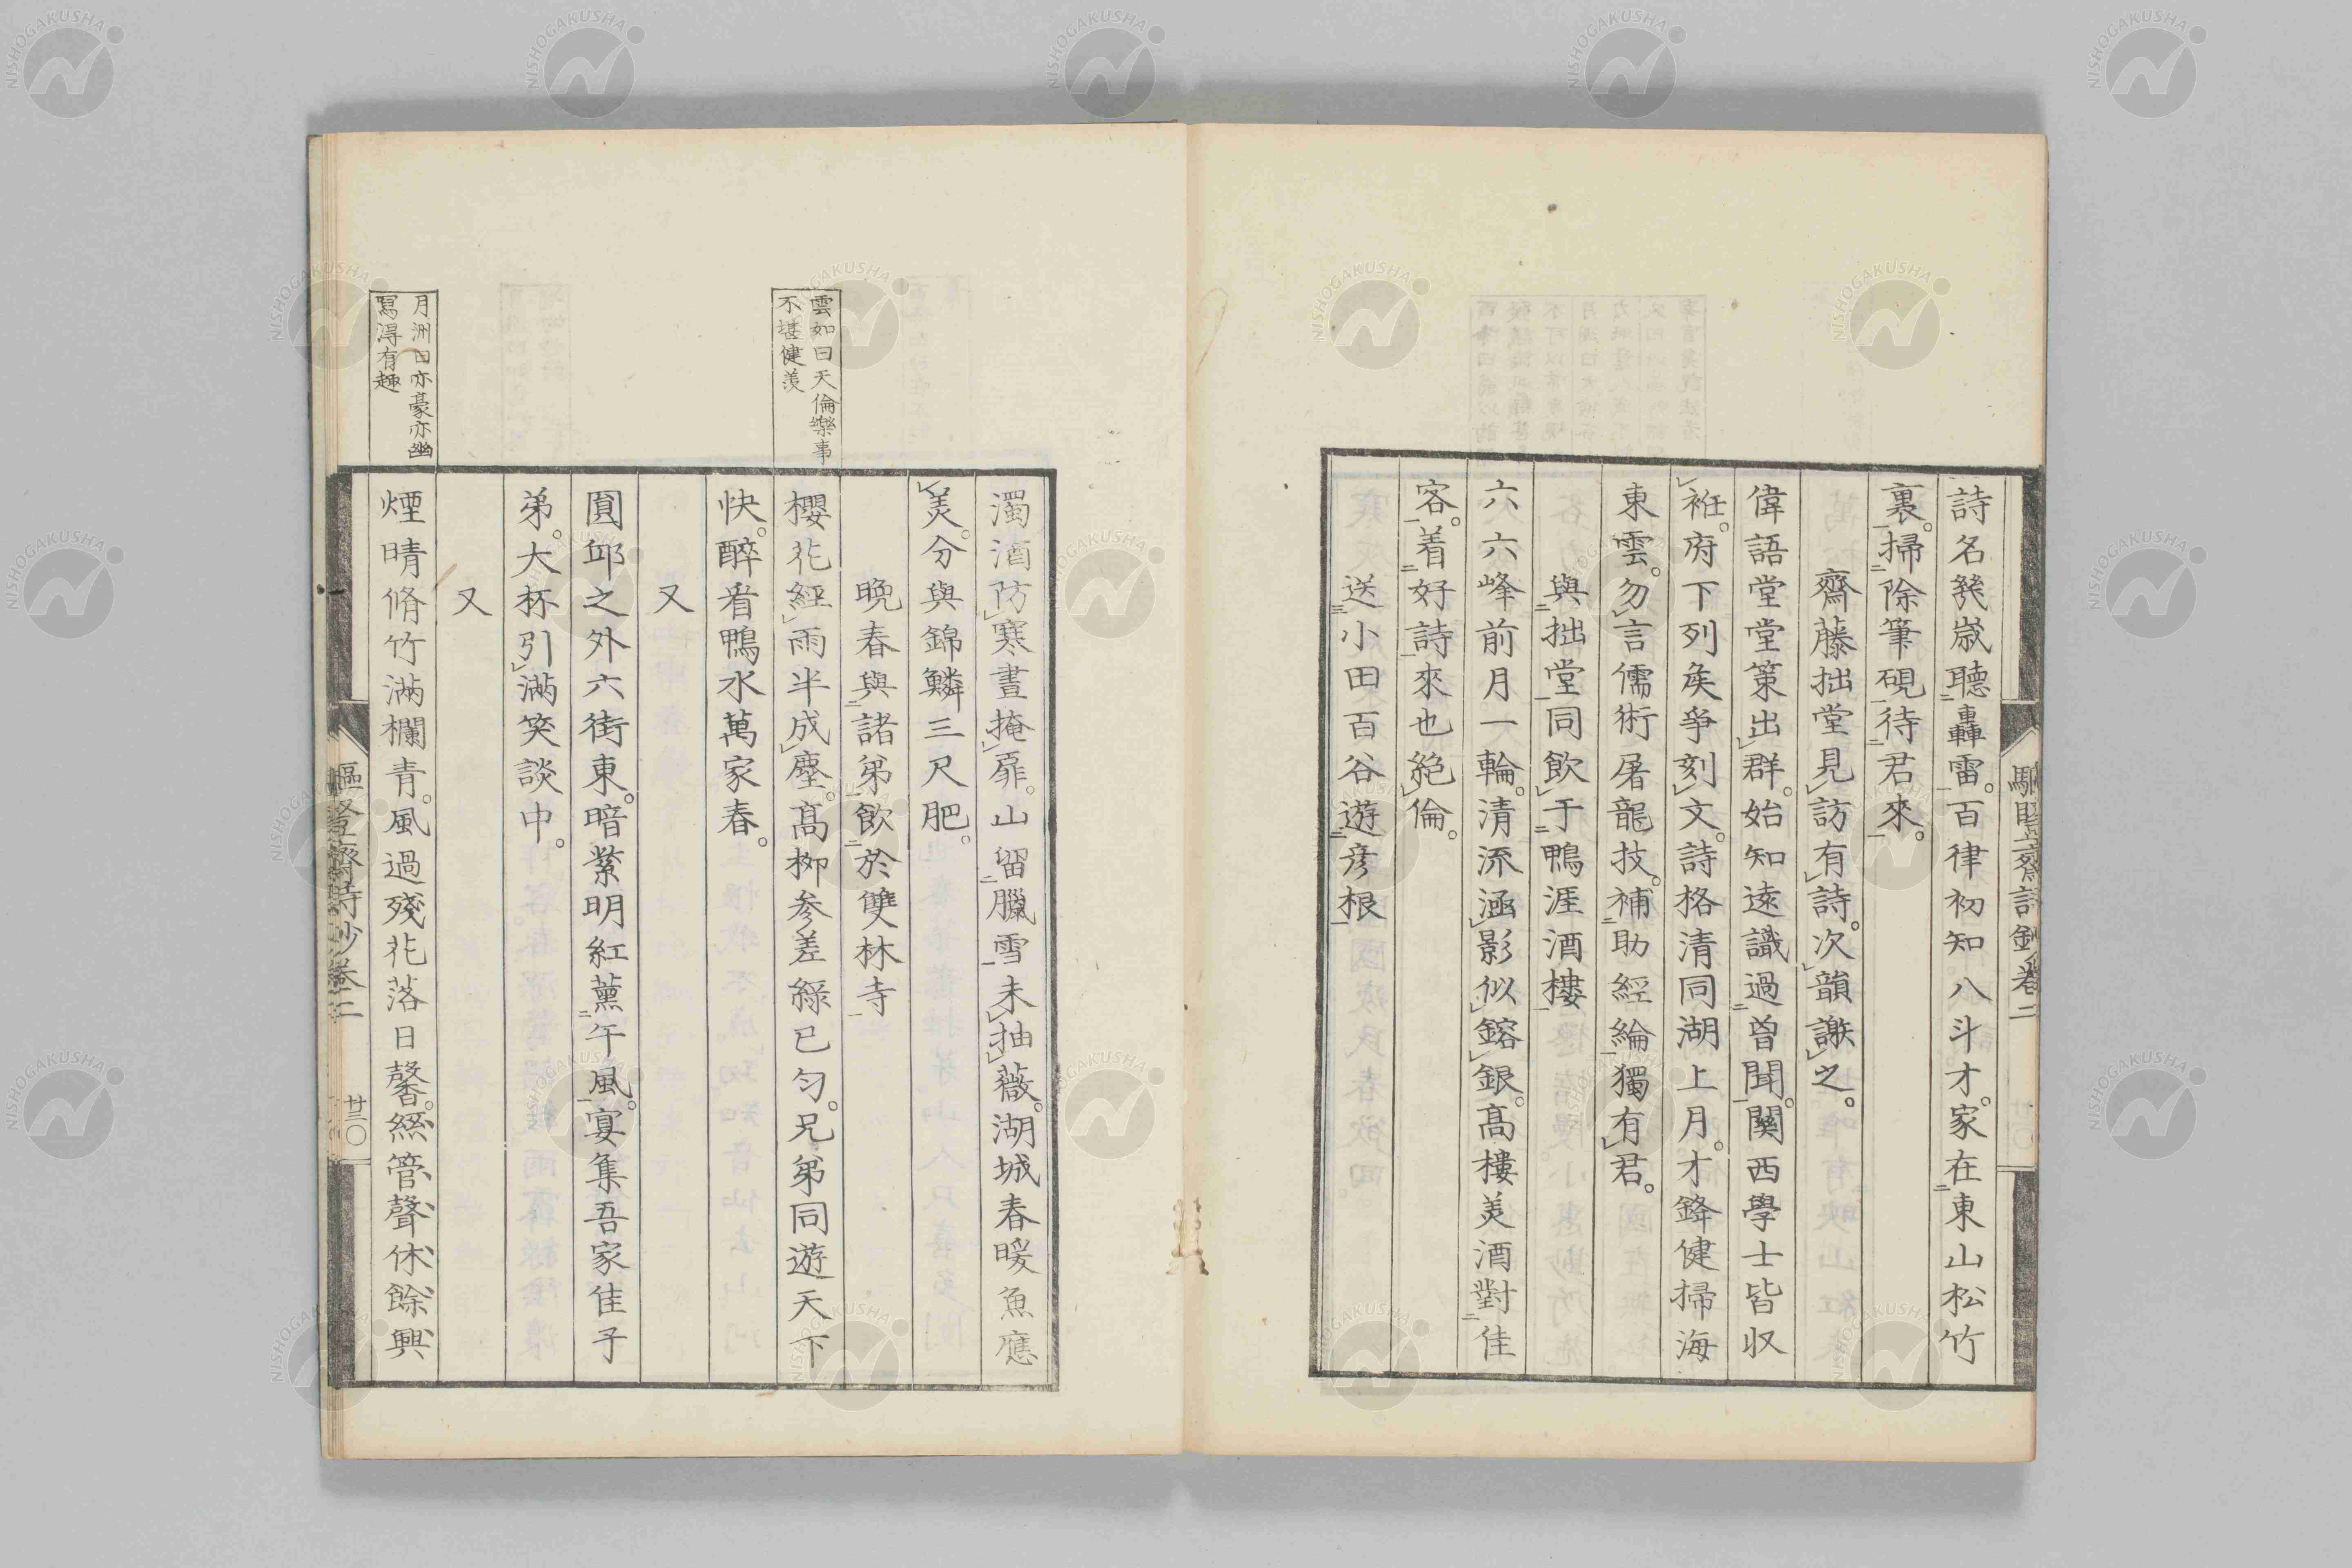 詩名幾歲聽轟雷。百律初知八斗才。家在東山松竹
裏。掃除筆硯待君來。
齋藤拙堂見訪有詩。次韻謝之。
偉語堂堂策出群。始知遠識過曾聞。關西學士皆収
衽。府下列矦爭刻文。詩格清同湖上月。才鋒健掃海
東雲。勿言儒術屠龍技。補助經綸獨有君。
與拙堂同飲于鴨涯酒樓
六六峰前月一輪。清流涵影似鎔銀。髙樓美酒對佳
客。着好詩來也絶倫。
送小田百谷遊彦根
齋詩鈔卷二
濁酒防寒晝掩扉。山留臘雪未抽薇。湖城春暖魚應
美。分與錦鱗三尺肥。
晩春與諸弟飲於雙林寺
雲如曰天倫樂事
不堪健羨
櫻花經雨半成塵。髙柳参差綠已匀。兄弟同遊天下
快。醉看鴨水萬家春。
又
圓邱之外六街東。暗紫明紅薰午風。宴集吾家佳子
弟。大杯引滿笑談中。
又
月洲曰亦豪亦幽
寫得有趣
煙晴脩竹滿欄青。風過殘花落日馨。絲管聲休餘興
齋詩鈔卷二
廿三〇
NISHOGAKUSHA